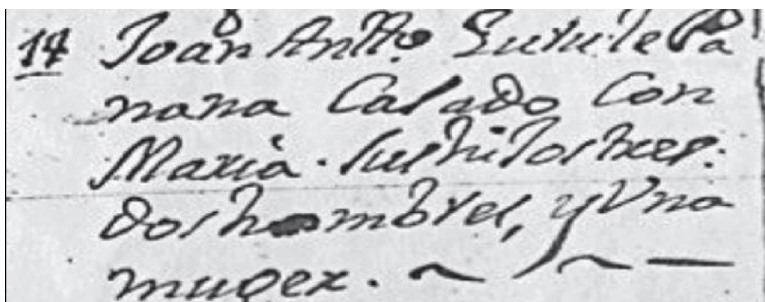 14 Joan Antto. Gutu.le Pa
nana Casado Con
Maria. sus hijos tres.
dos hombres, y Vna
muger.